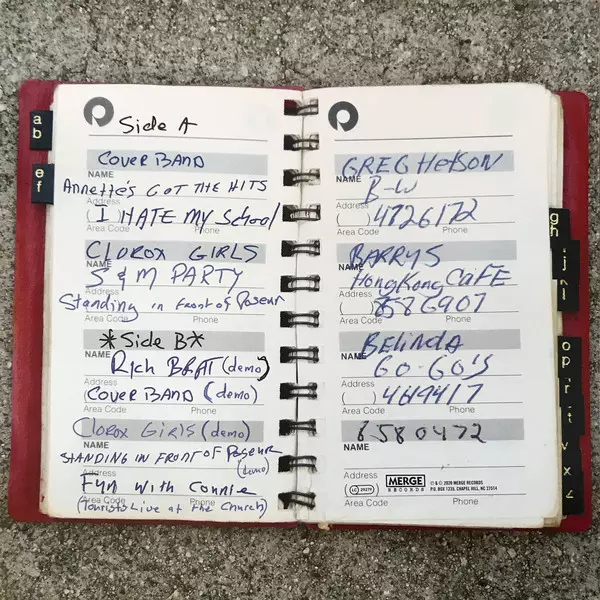 a
b
e
f
Side A
COVER BAND
NAME
ANNette's GOT THE HITS
Address
I HATE MY School
( )
Area Code Phone
CLOROX GIRLS
NAME
S & M PARTY
Address
Standing in front of Poseur
Area Code Phone
*Side B*
NAME
Rich BRAT (demo)
Address
COVER BAND (demo)
Area Code Phone
Clorox GIRLS (demo)
NAME
STANDING IN FRONT OF Poseur
(demo)
Address
FUN WITH CONNIE
(Tourists Live at the Church)
Area Code Phone
GREG HetSON
NAME
B-W
Address
( ) 4726172
Area Code Phone
BARRYS
NAME
HongKong CaFE
Address
( ) 8586907
Area Code Phone
BELINDA
NAME
GO-GO'S
Address
( ) 4619417
Area Code Phone
8580472
NAME
Address
LC 29279
MERGE
RECORDS
℗ & © 2020 MERGE RECORDS
P.O. BOX 1235, CHAPEL HILL, NC 27514
Area Code Phone
g
h
j
l
o
p
r
t
v
x
z